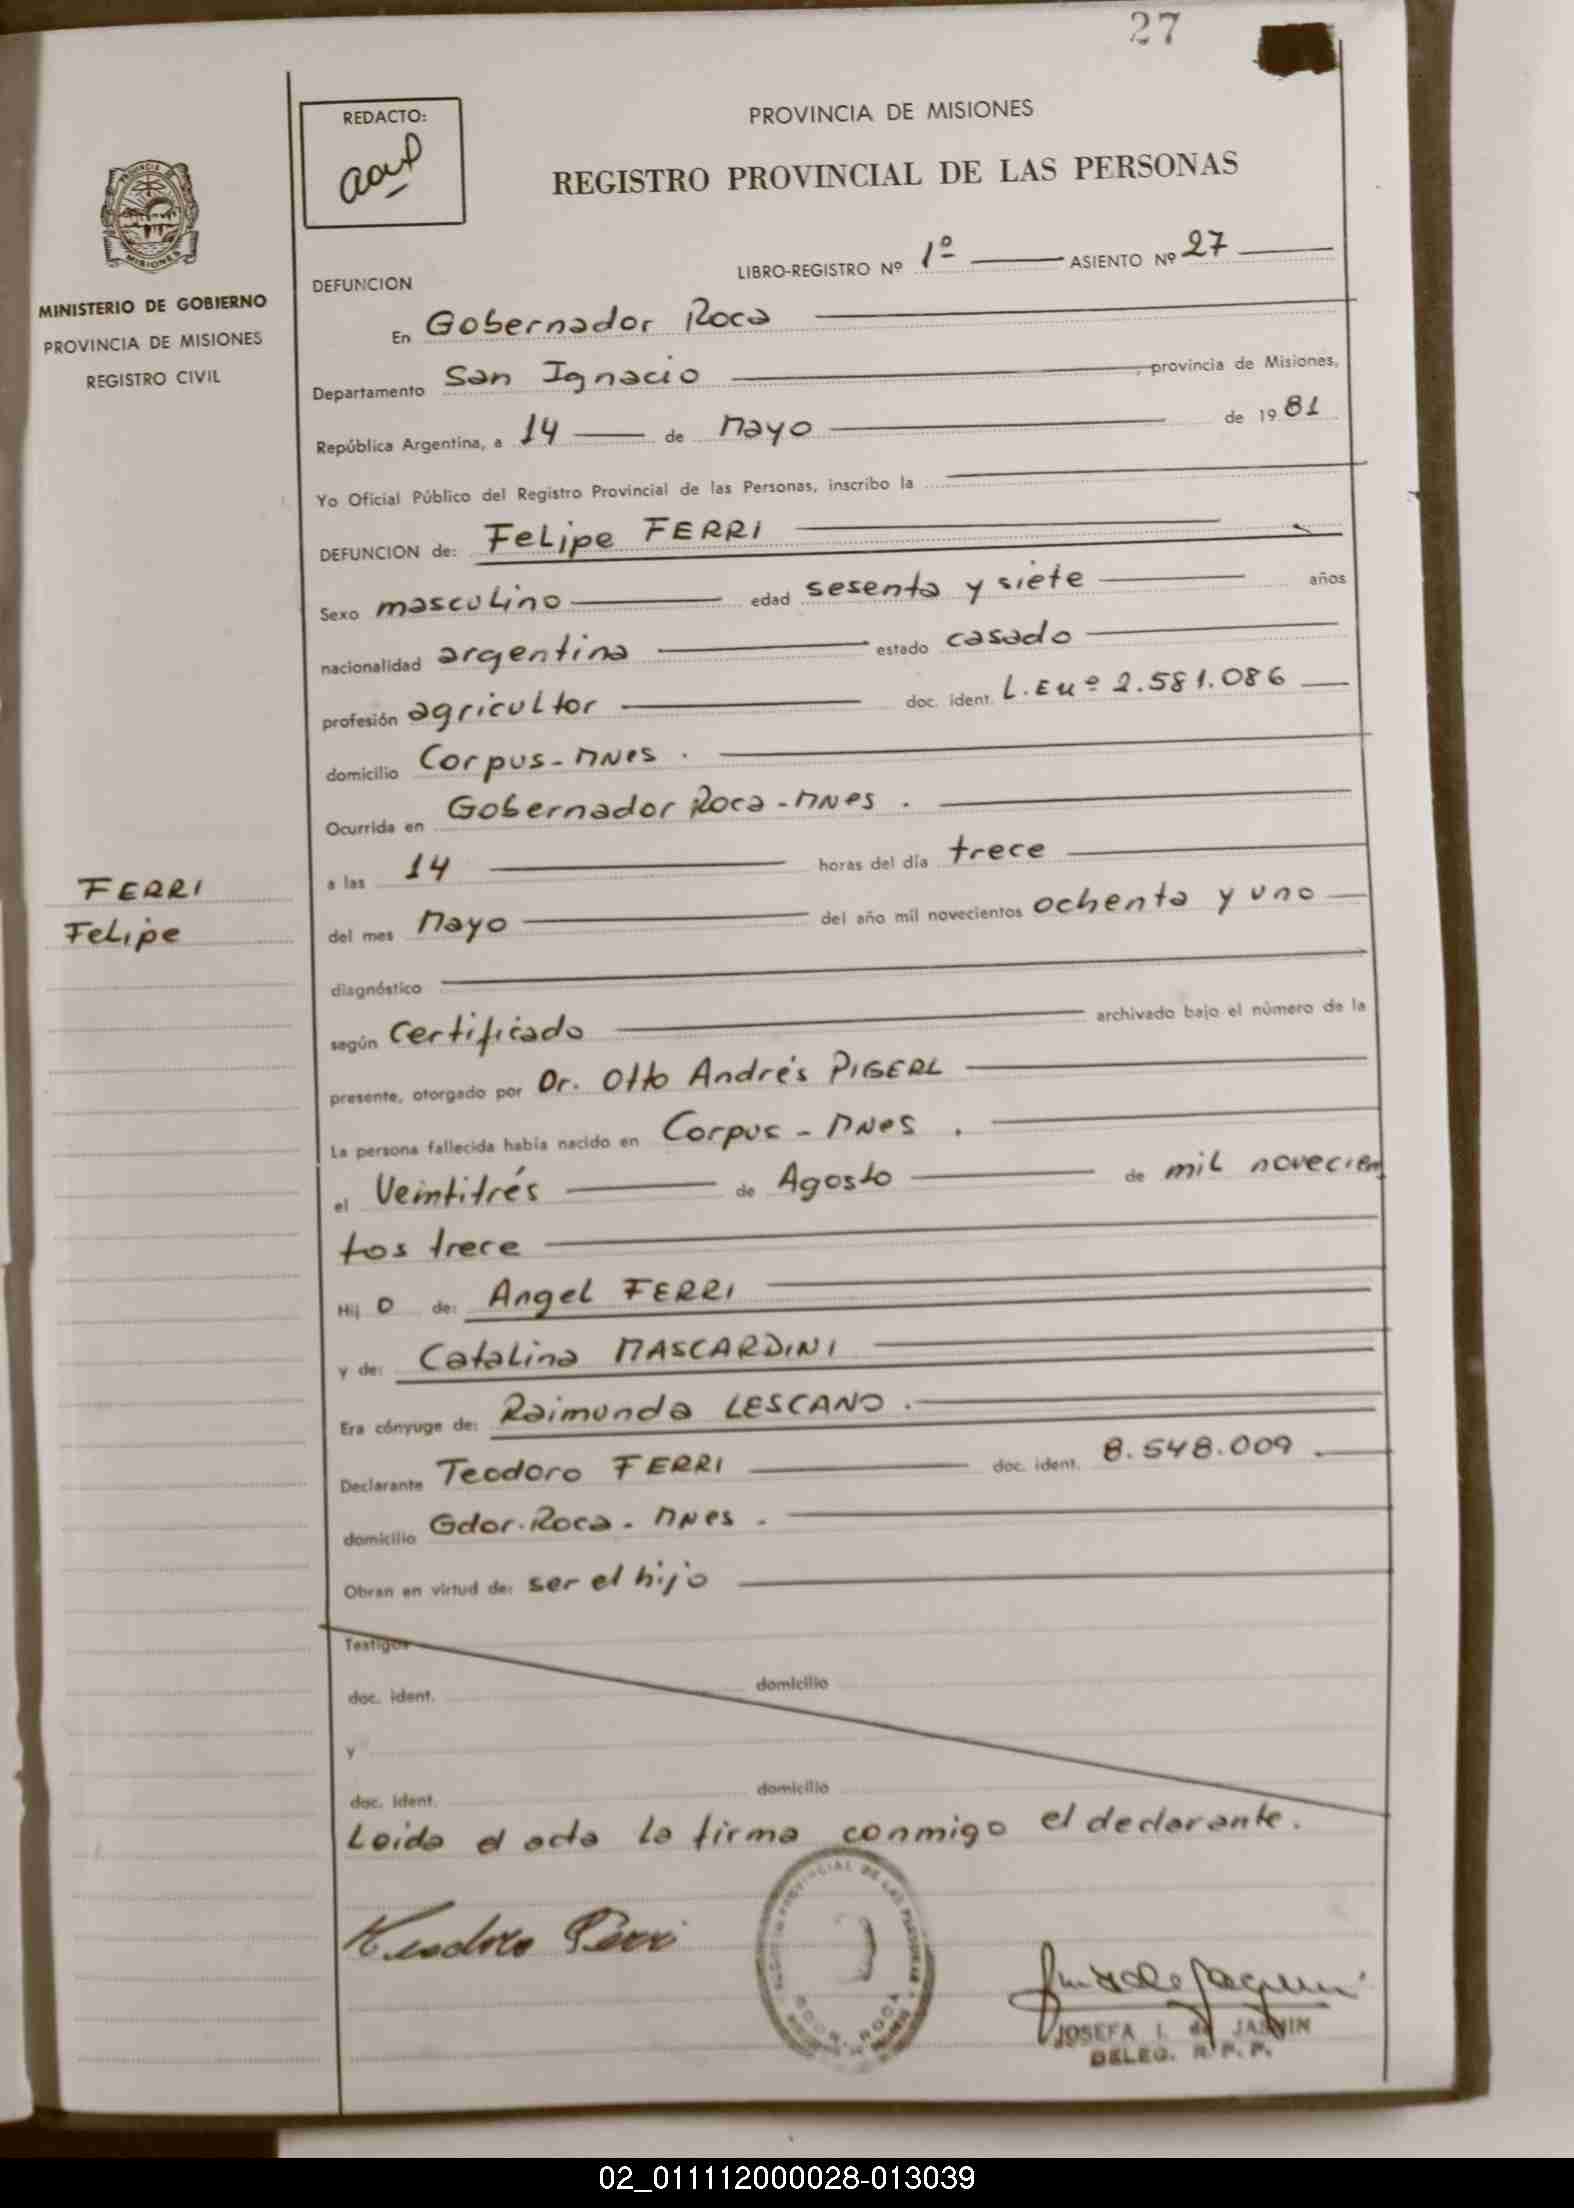 27
REDACTO:
PROVINCIA DE MISIONES
REGISTRO PROVINCIAL DE LAS PERSONAS
PROVINCIA DE
MISIONES
MINISTERIO DE GOBIERNO
PROVINCIA DE MISIONES
REGISTRO CIVIL
LIBRO-REGISTRO Nº 1º ASIENTO Nº 27
DEFUNCION
En Gobernador Roca
Departamento San Ignacio, provincia de Misiones,
República Argentina, a 14 de Mayo de 1981
Yo Oficial Público del Registro Provincial de las Personas, inscribo la
DEFUNCION de: Felipe FERRI
Sexo masculino edad sesenta y siete años
nacionalidad argentina estado casado
profesión agricultor doc. ident. L.E nº 2.581.086
domicilio Corpus-Mnes.
Ocurrida en Gobernador Roca-Mnes.
a las 14 horas del día trece
FERRI
Felipe
del mes Mayo del año mil novecientos ochenta y uno
diagnóstico
según certificado archivado bajo el número de la
presente, otorgado por Dr. Otto Andrés PIGERL
La persona fallecida había nacido en Corpus - Mnes.
el Veintitrés de Agosto de mil novecien
tos trece
Hij o de: Angel FERRI
y de: Catalina MASCARDINI
Era cónyuge de: Raimunda LESCANO.
Declarante Teodoro FERRI doc. ident. 8.548.009.
domicilio Gdor. Roca - Mnes.
Obran en virtud de: ser el hijo
Testigos
doc. ident. domicilio
y
doc. ident. domicilio
Leida el acta la firma conmigo el declarante.
Teodoro Ferri
PROVINCIAL DE LAS PERSONAS
GDOR. ROCA
JOSEFA I. de
DELEG. R. P. P.
02_011112000028-013039